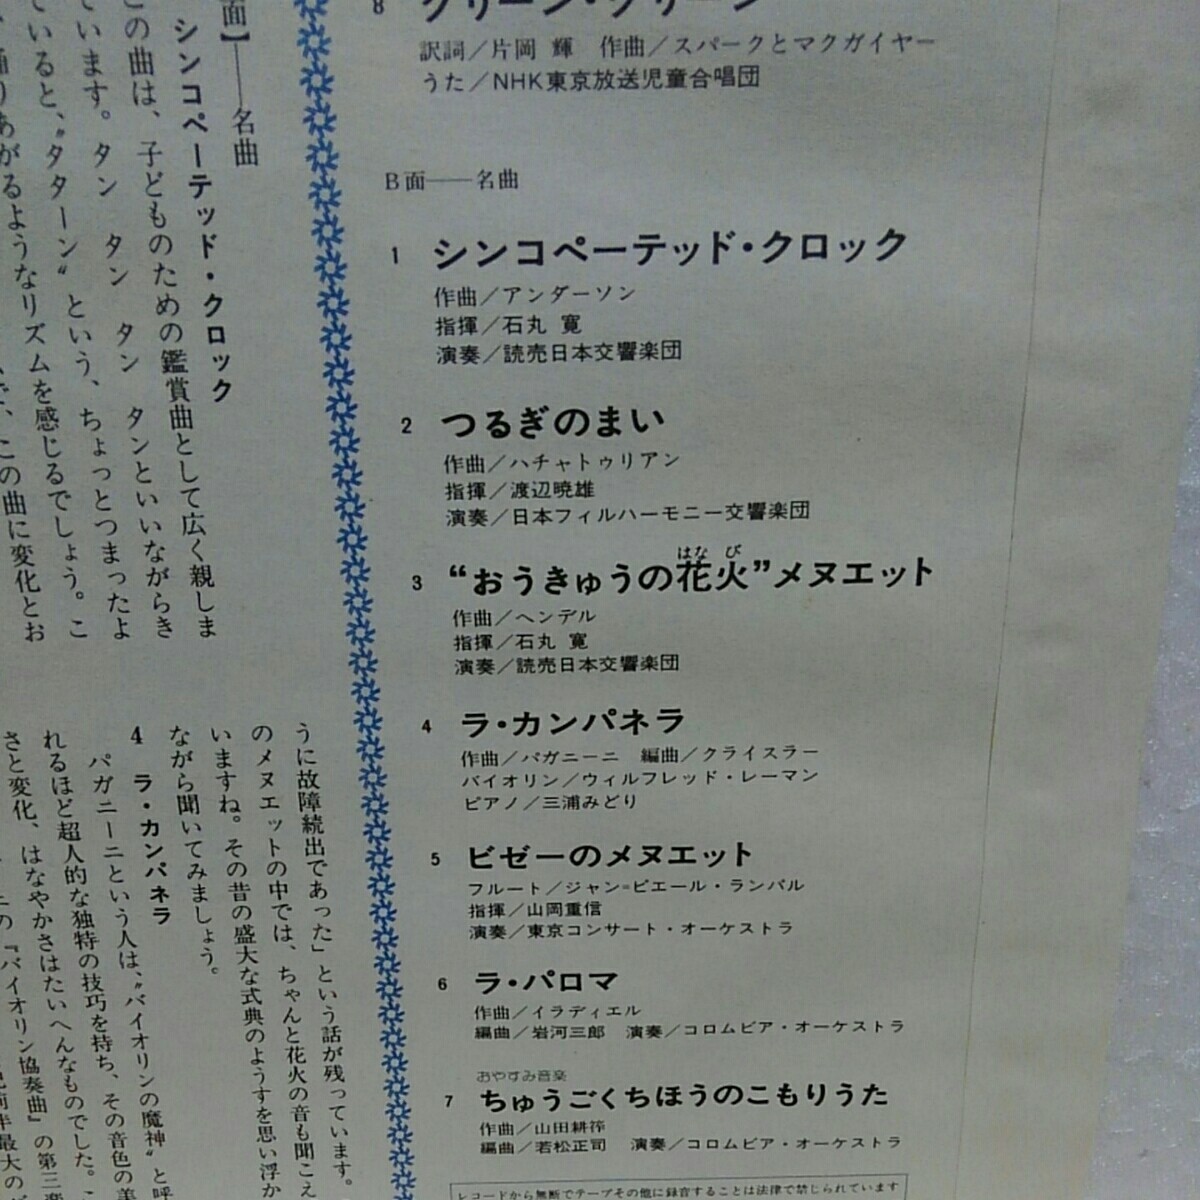 8 グリーン・グリーン
訳詞／片岡 輝 作曲／スパークとマクガイヤー
うた／NHK東京放送児童合唱団
B面──名曲
1 シンコペーテッド・クロック
作曲／アンダーソン
指揮／石丸 寛
演奏／読売日本交響楽団
2 つるぎのまい
作曲／ハチャトゥリアン
指揮／渡辺暁雄
演奏／日本フィルハーモニー交響楽団
はな び
3 “おうきゅうの花火”メヌエット
作曲／ヘンデル
指揮／石丸 寛
演奏／読売日本交響楽団
4 ラ・カンパネラ
作曲／パガニーニ 編曲／クライスラー
バイオリン／ウィルフレッド・レーマン
ピアノ／三浦みどり
5 ビゼーのメヌエット
フルート／ジャン=ピエール・ランパル
指揮／山岡重信
演奏／東京コンサート・オーケストラ
6 ラ・パロマ
作曲／イラディエル
編曲／岩河三郎 演奏／コロムビア・オーケストラ
おやすみ音楽
7 ちゅうごくちほうのこもりうた
作曲／山田耕筰
編曲／若松正司 演奏／コロムビア・オーケストラ
レコードから無断でテープその他に録音することは法律で禁じられています
面】──名曲
シンコペーテッド・クロック
この曲は、子どものための鑑賞曲として広く親しま
ています。タン タン タン タンといいながらき
ていると、〝タターン〟という、ちょっとつまったよ
踊りあがるようなリズムを感じるでしょう。こ
、この曲に変化とお
うに故障続出であった」という話が残っています。
のメヌエットの中では、ちゃんと花火の音も聞こえ
いますね。その昔の盛大な式典のようすを思い浮か
ながら聞いてみましょう。
4 ラ・カンパネラ
パガニーニという人は、〝バイオリンの魔神〟と呼
れるほど超人的な独特の技巧を持ち、その音色の美
さと変化、はなやかさはたいへんなものでした。こ
ニの『バイオリン協奏曲』の第三楽